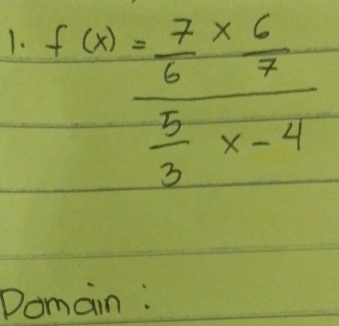 1. f(x) = 7/6 x 6/7
5/3 x - 4
Domain :